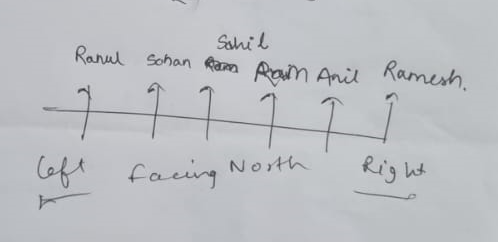 Sahil
Rahul Sohan Ram Anil Ramesh.
Left facing North Right